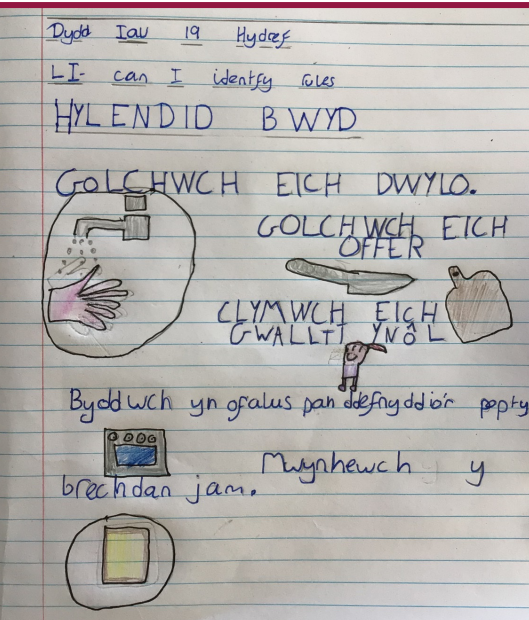 Dydd Iau 19 Hydref
LI- can I identfy rules
HYLENDID BWYD
GOLCHWCH EICH DWYLO.
GOLCHWCH EICH
OFFER
CLYMWCH EICH
GWALLT! YNÔL
Byddwch yn ofalus pan ddefnyddio'r popty
Mwynhewch y
brechdan jam.